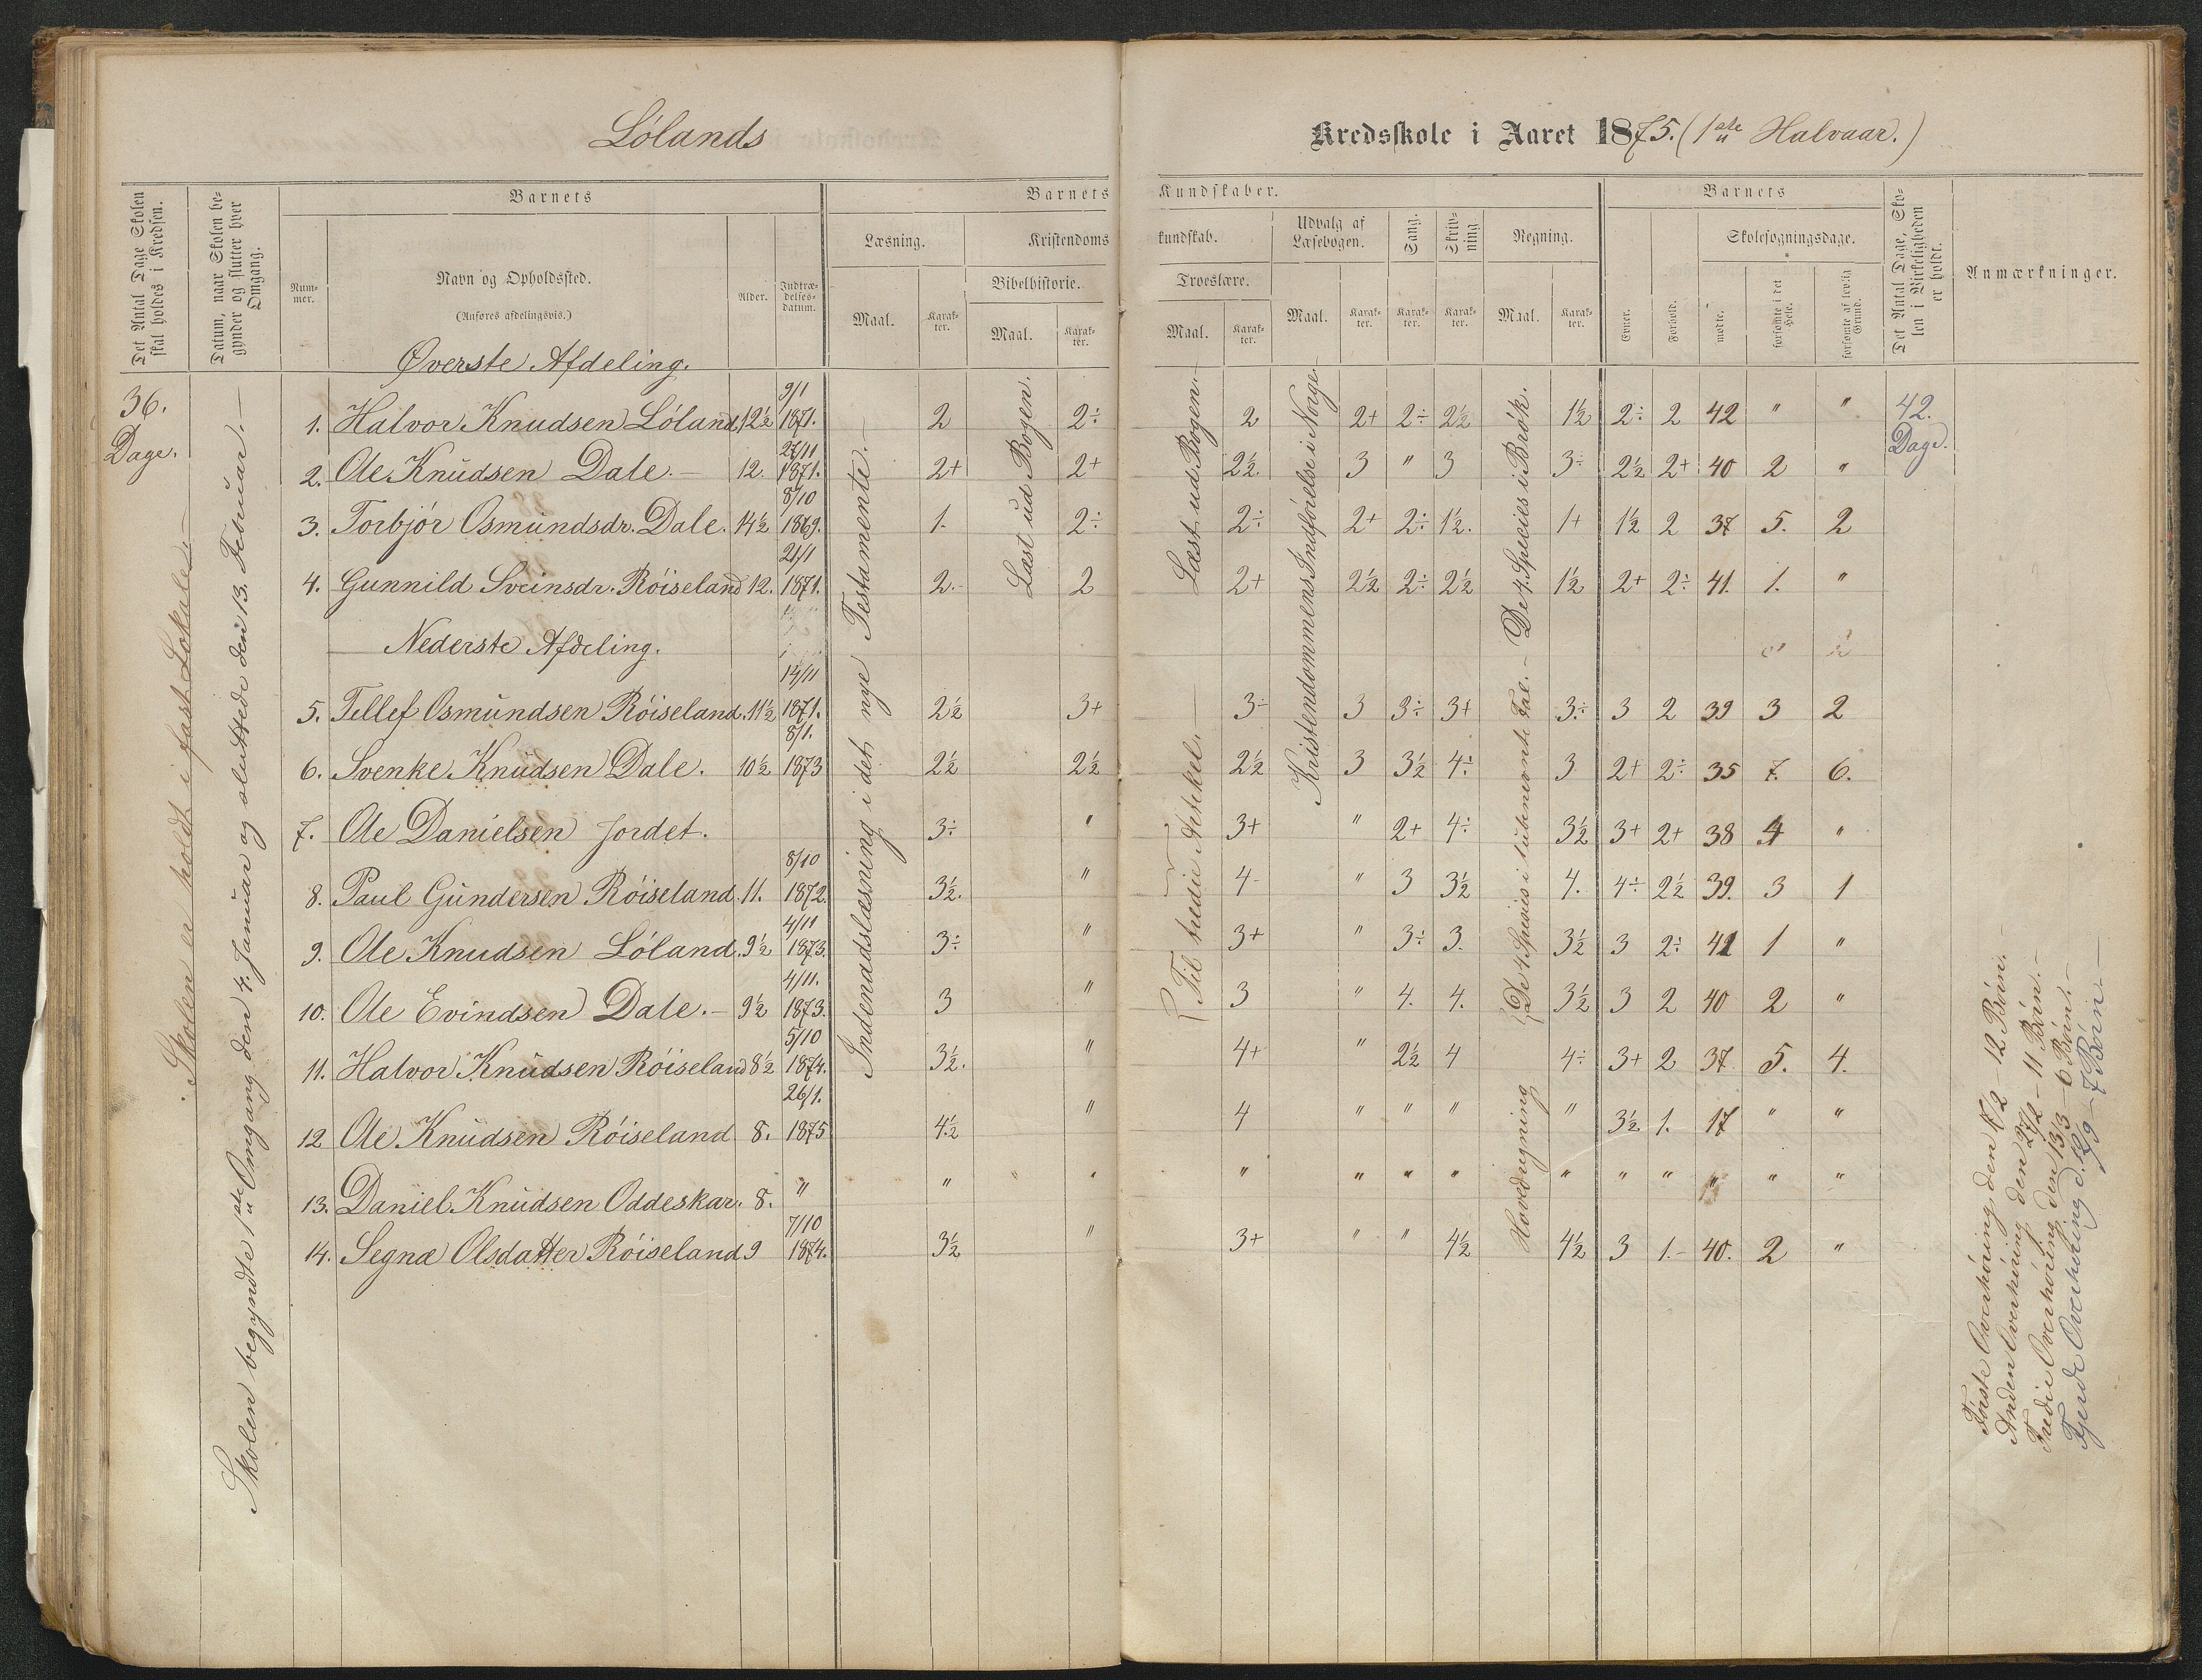 Lölands
Kredsskole i Aaret 1875. (1ste Halvaar.)
Det Antal Dage Skolen skal holdes i Kredsen.
Datum, naar Skolen begynder og slutter hver Omgang.
Barnets
Nummer.
Navn og Opholdssted.
(Anføres afdelingsvis.)
Alder.
Indtrædelsesdatum.
Barnets Kundskaber.
Læsning.
Maal.
Karakter.
Kristendomskundskab.
Bibelhistorie.
Maal.
Karakter.
Troeslære.
Maal.
Karakter.
Udvalg af Læsebogen.
Maal.
Karakter.
Sang.
Karakter.
Skrivning.
Karakter.
Regning.
Maal.
Karakter.
Barnets
Evner.
Forhold.
Skolesøgningsdage.
mødte.
forsømte i det Hele.
forsømte af lovlig Grund.
Det Antal Dage, Skolen i Virkeligheden er holdt.
Anmærkninger.
36. Dage.
Skolen er holdt i fast Lokale.
Skolen begyndte 1ste Omgang den 4. Januar og sluttede den 13. Februar.
Øverste Afdeling.
1. Halvor Knudsen Löland. 12½ 9/1 1871. 2 2÷ 2 2+ 2÷ 2½ 1½ 2÷ 2 42 " " 42. Dage.
2. Ole Knudsen Dale. 12. 27/11 1871. 2+ 2+ 2½ 3 " 3 3÷ 2½ 2+ 40 2 "
3. Torbjör Osmundsdr. Dale. 14½ 8/10 1869. 1. 2÷ 2÷ 2+ 2÷ 1½. 1+ 1½ 2 37 5. 2
4. Gunnild Sveinsdr. Röiseland 12. 21/1 1871. 2.- 2 2+ 2½ 2÷ 2½ 1½ 2+ 2÷ 41. 1. "
Nederste Afdeling.
5. Tellef Osmundsen Röiseland. 11½ 14/11 1871. 2½ 3+ 3÷ 3 3÷ 3+ 3÷ 3 2 39 3 2
6. Svenke Knudsen Dale. 10½ 8/1. 1873 2½ 2½ 2½ 3 3½ 4÷ 3 2+ 2÷ 35 7. 6.
7. Ole Danielsen Jordet. 3÷ " 3+ " 2+ 4÷ 3½ 3+ 2+ 38 4 "
8. Paul Gundersen Röiseland. 11. 8/10 1872. 3½. " 4- " 3 3½ 4. 4÷ 2½ 39. 3 1
9. Ole Knudsen Löland. 9½ 4/11 1873. 3÷ " 3+ " 3÷ 3. 3½ 3 2÷ 41 1 "
10. Ole Evindsen Dale. 9½ 4/11. 1873. 3 " 3 " 4. 4. 3½ 3 2 40 2 "
11. Halvor Knudsen Röiseland 8½ 5/10 1874. 3½. " 4+ " 2½ 4 4÷ 3+ 2 37 5. 4.
12 Ole Knudsen Röiseland 8. 26/1. 1875 4½ " 4 " " " " 3½ 1. 17 " "
13. Daniel Knudsen Oddeskar. 8. " " " " " " " " " " " " " "
14. Segna Olsdatter Röiseland 9 7/10 1874. 3½ " 3+ " " 4½ 4½ 3 1.- 40. 2 "
Indenadslæsning i det nye Testamente.
Læst ud Bogen.
Læst ud Bogen.
Til tredie Artikel.
Kristendommens Indförelse i Norge.
De 4. Species i Brök.
De 4. Species i ubenævnte Tal.
Hovedregning
Förste Overhöring den - 12 Börn.
Anden Overhöring den 27/2 - 11 Börn.
Tredie Overhöring den 13/3 - 6 Börn.
Fjerde Overhöring d. - 7 Börn.